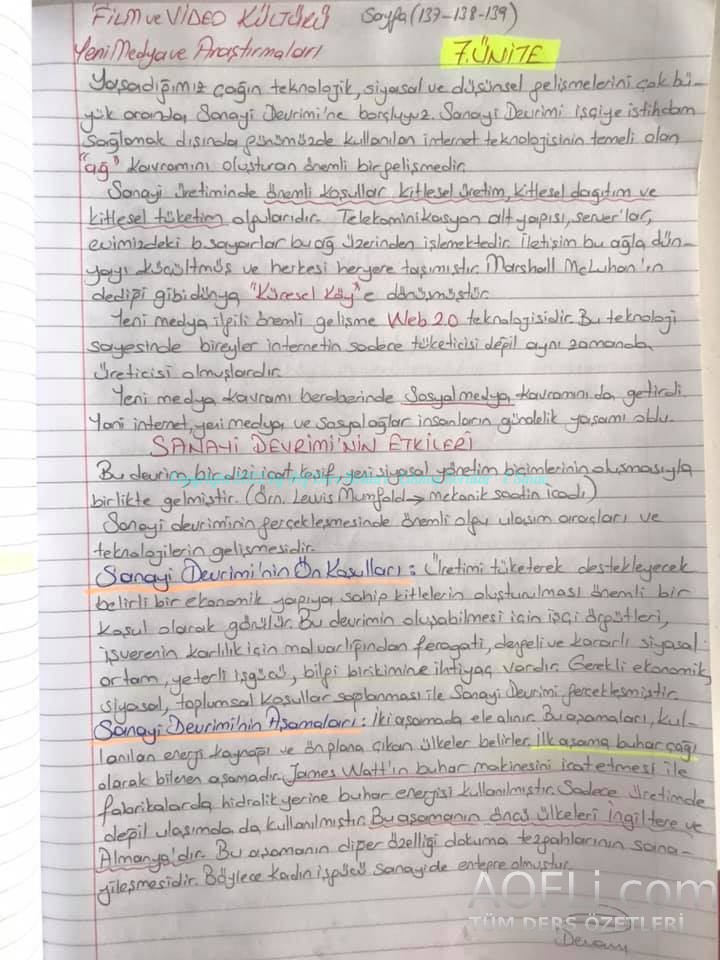 FİLM ve VİDEO KÜLTÜRÜ Sayfa (137-138-139)
Yeni Medya ve Araştırmaları 7. ÜNİTE
Yaşadığımız çağın teknolojik, siyasal ve düşünsel gelişmelerini çok bü-
yük oranda Sanayi Devrimi'ne borçluyuz. Sanayi Devrimi işçiye istihdam
sağlamak dışında günümüzde kullanılan internet teknolojisinin temeli olan
"ağ" kavramını oluşturan önemli bir gelişmedir.
Sanayi üretiminde önemli koşullar kitlesel üretim, kitlesel dağıtım ve
kitlesel tüketim olgularıdır. Telekominikasyon alt yapısı, server'lar,
evimizdeki b.sayarlar bu ağ üzerinden işlemektedir. İletişim bu ağla dün-
yayı küçültmüş ve herkesi heryere taşımıştır. Marshall McLuhan'ın
dediği gibi dünya "Küresel Köy"e dönüşmüştür.
Yeni medya ilgili önemli gelişme Web 2.0 teknolojisidir. Bu teknoloji
sayesinde bireyler internetin sadece tüketicisi değil aynı zamanda
üreticisi olmuşlardır.
Yeni medya kavramı beraberinde Sosyal medya kavramını da getirdi.
Yani internet, yeni medya ve sosyal ağlar insanların gündelik yaşamı oldu.
SANAYİ DEVRİMİ'NİN ETKİLERİ
Bu devrim bir dizi icat, keşif, yeni siyasal yönetim biçimlerinin oluşmasıyla
birlikte gelmiştir. (Örn. Lewis Mumfold → mekanik saatin icadı)
Sanayi devriminin gerçekleşmesinde önemli olgu ulaşım araçları ve
teknolojilerin gelişmesidir.
Sanayi Devrimi'nin Ön Koşulları: Üretimi tüketerek destekleyecek
belirli bir ekonomik yapıya sahip kitlelerin oluşturulması önemli bir
koşul olarak görülür. Bu devrimin oluşabilmesi için işçi örgütleri,
işverenin karlılık için mal varlığından feragati, dengeli ve kararlı siyasal
ortam, yeterli işgücü, bilgi birikimine ihtiyaç vardır. Gerekli ekonomik,
siyasal, toplumsal koşullar sağlanması ile Sanayi Devrimi gerçekleşmiştir.
Sanayi Devrimi'nin Aşamaları: İki aşamada ele alınır. Bu aşamaları, kul-
lanılan enerji kaynağı ve ön plana çıkan ülkeler belirler. İlk aşama buhar çağı
olarak bilenen aşamadır. James Watt'ın buhar makinesini icat etmesi ile
fabrikalarda hidrolik yerine buhar enerjisi kullanılmıştır. Sadece üretimde
değil ulaşımda da kullanılmıştır. Bu aşamanın öncü ülkeleri İngiltere ve
Almanya'dır. Bu aşamanın diğer özelliği dokuma tezgahlarının sana-
yileşmesidir. Böylece kadın işgücü sanayide entegre olmuştur.
AOFLi.com
TÜM DERS ÖZETLERİ
Devam